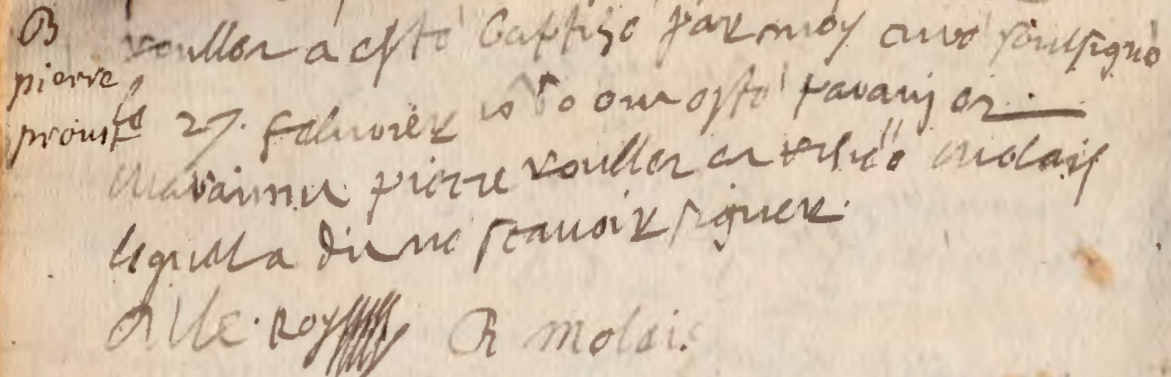 B
pierre
proust
rouller a esté baptisé par moy curé soussigné
le 27. febvrier et ont esté parain et
maraine pierre rouller et molais
lequel a dit ne scavoir signer.
le Roy R molais